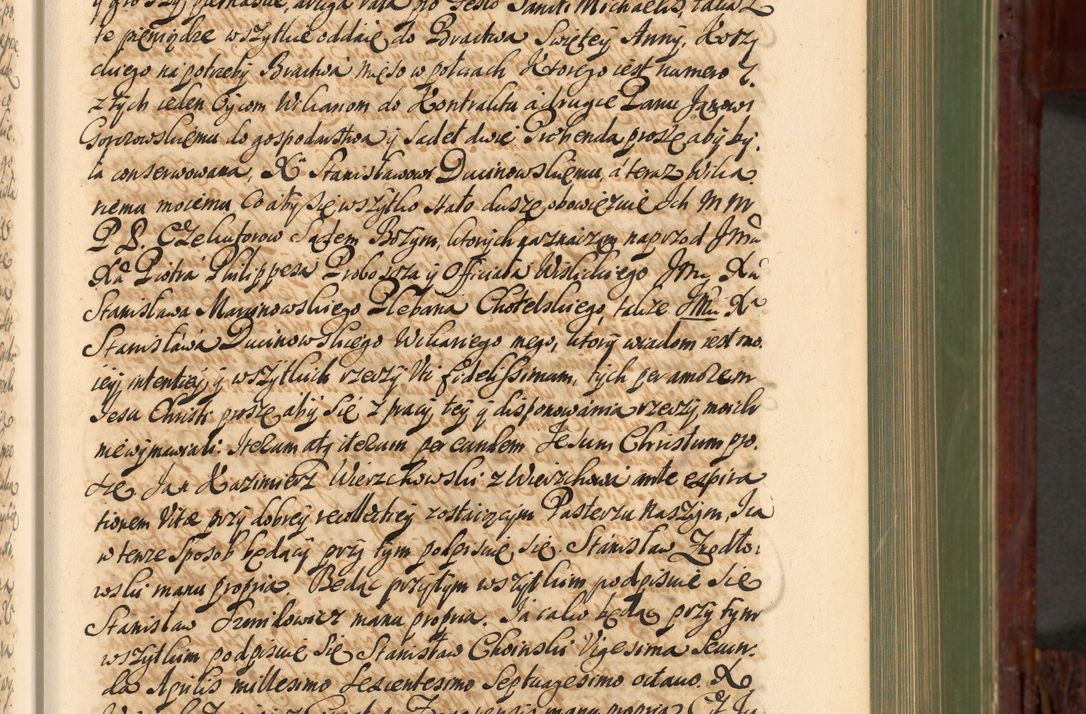 te pieniądze wszytkie oddaię do Bractwa Swiętey Anny, Korzy
ckiego na potrzeby Bractwa Mięso w połciach Ktorego iest numero 7.
z tych ieden Oycom Wilianom do Kontraktu a drugie Panu Janowi
do gospodarstwa y Sadeł dwie Prebenda proszę aby by,
ła conserwowana, X Stanisławowi Ducinowskiemu, a teraz Wilia
riemu moiemu, Co aby się wszytko stało duszę obowięzuie Ich M M
P P. Exekutorow Sądem Bozym, ktorych naznaczam naprzod Jmu
Xa Piotra Philippesa Proboszcza y Officiała Wislickiego Jmu Xa
Stanisława Marcinowskiego Plebana Chotelskiego, takze Jmu X
Stanisława Ducinowskiego Wikariego mego, ktory wiadom iest mo
iey intentiey, y wszytkich rzeczy Vti fidelissimam, tych per amorem
Jesu Christi proszę, aby się z pracy tey y disponowania rzeczy moich
nie wymawiali: Iterum atq iterum per eundem Jesum Christum pro
szę. Jan Kazimierz Wierzchowski z Wierzchowia ante expira
tionem Vitæ przy dobrey recollectiey zostaiączym Pasterzu Naszym, Ja
w tenze sposob będący przy tym podpisuię się. Stanisław Zrodło:
wski manu propria. Będąc przytym wszytkim podpisuię się
Stanisław manu propria. Ja także będąc przy tym
wszytkim podpisuię się Stanisław Choinski Vigesima Secun
da Aprilis millesimo sexcentesimo Septuagesimo octauo. X
manu propria